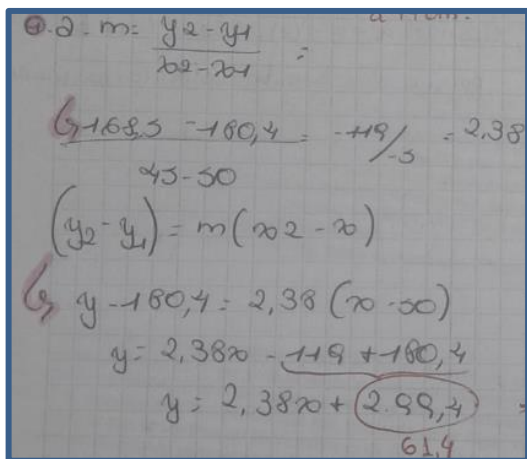 a.2 = m = y2 - y1 / x2 - x1 =
168,5 - 180,4 / 45 - 50 = -119/-5 = 2,38
(y2 - y1) = m (x2 - x)
y - 180,4 = 2,38 (x - 50)
y = 2,38x - 119 + 180,4
y = 2,38x + 2.99,4 =
61,4